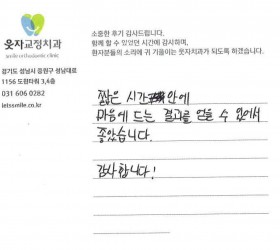 웃자교정치과
smile orthodontic clinic
경기도 성남시 중원구 성남대로
1156 도럼타워 3,4층
031 606 0282
jetssmile.co.kr
소중한 후기 감사드립니다.
함께 할 수 있었던 시간에 감사하며,
환자분들의 소리에 귀 기울이는 웃자치과가 되도록 하겠습니다.
짧은 시간 안에
마음에 드는 결과를 얻을 수 있어서
좋았습니다.
감사합니다!